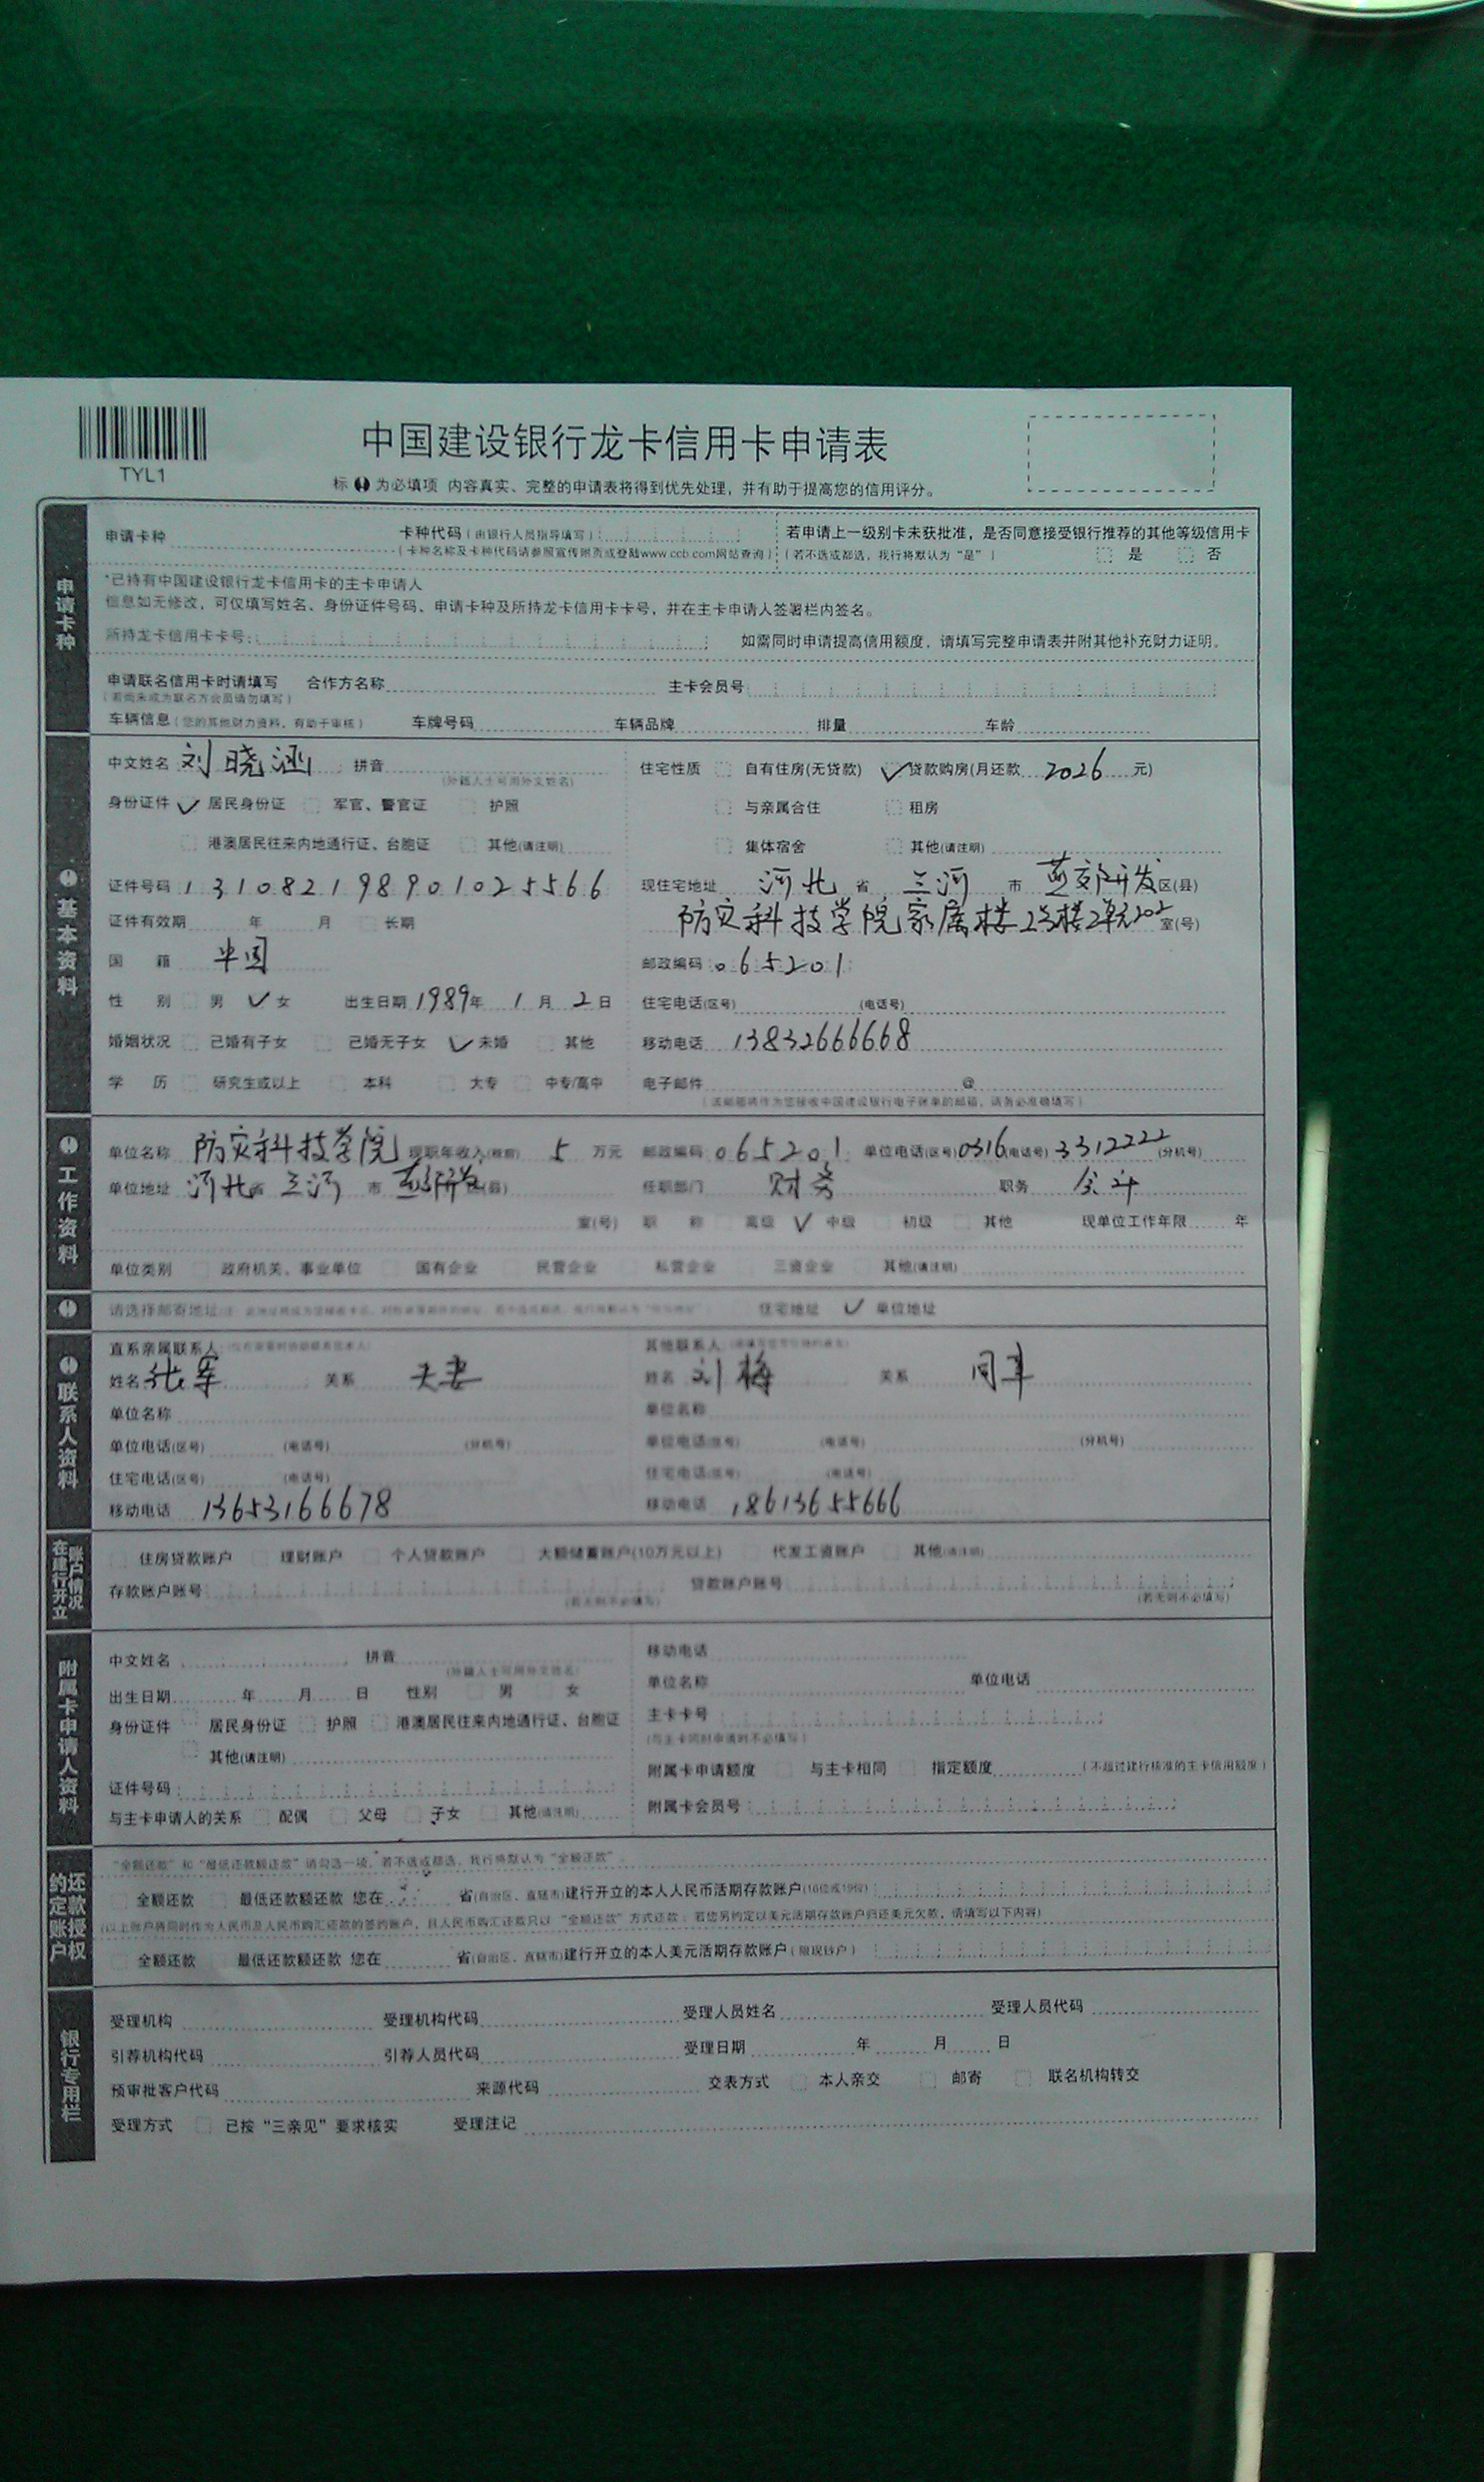 TYL1
中国建设银行龙卡信用卡申请表
标 为必填项 内容真实、完整的申请表将得到优先处理，并有助于提高您的信用评分。
申请卡种
申请卡种 卡种代码(由银行人员指导填写) 若申请上一级别卡未获批准，是否同意接受银行推荐的其他等级信用卡
(卡种名称及卡种代码请参照宣传附页或登陆www.ccb.com网站查询) (若不选或都选，我行将默认为“是”) 是 否
*已持有中国建设银行龙卡信用卡的主卡申请人
信息如无修改，可仅填写姓名、身份证件号码、申请卡种及所持龙卡信用卡卡号，并在主卡申请人签署栏内签名。
所持龙卡信用卡卡号: 如需同时申请提高信用额度，请填写完整申请表并附其他补充财力证明。
申请联名信用卡时请填写 合作方名称 主卡会员号
(若尚未成为联名方会员请勿填写)
车辆信息(您的其他财力资料，有助于审核) 车牌号码 车辆品牌 排量 车龄
基本资料
中文姓名 刘晓涵 拼音 住宅性质 自有住房(无贷款) ✓贷款购房(月还款 2026 元)
(外籍人士可用外文姓名)
身份证件 ✓ 居民身份证 军官、警官证 护照 与亲属合住 租房
港澳居民往来内地通行证、台胞证 其他(请注明) 集体宿舍 其他(请注明)
证件号码 131082198901025566 现住宅地址 河北 省 三河 市 燕郊开发区(县)
证件有效期 年 月 长期 防灾科技学院家属楼2号楼2单元202 室(号)
国 籍 中国 邮政编码 065201
性 别 男 ✓ 女 出生日期 1989年 1 月 2 日 住宅电话(区号) (电话号)
婚姻状况 已婚有子女 已婚无子女 ✓ 未婚 其他 移动电话 13832666668
学 历 研究生或以上 本科 大专 中专/高中 电子邮件 @
(该邮箱将作为您接收中国建设银行电子账单的邮箱，请务必准确填写)
工作资料
单位名称 防灾科技学院 现职年收入(税前) 5 万元 邮政编码 065201 单位电话(区号)0316(电话号)3312222(分机号)
单位地址 河北省 三河 市 燕郊开发区(县) 任职部门 财务 职务 会计
室(号) 职 称 高级 ✓ 中级 初级 其他 现单位工作年限 年
单位类别 政府机关、事业单位 国有企业 民营企业 私营企业 三资企业 其他(请注明)
请选择邮寄地址 住宅地址 ✓ 单位地址
联系人资料
直系亲属联系人 其他联系人
姓名 张军 关系 夫妻 姓名 刘梅 关系 同事
单位名称 单位名称
单位电话(区号) (电话号) (分机号) 单位电话(区号) (电话号) (分机号)
住宅电话(区号) (电话号) 住宅电话(区号) (电话号)
移动电话 13653166678 移动电话 18613655666
在建行开立账户情况
住房贷款账户 理财账户 个人贷款账户 大额储蓄账户(10万元以上) 代发工资账户 其他(请注明)
存款账户账号 贷款账户账号
(若无则不必填写) (若无则不必填写)
附属卡申请人资料
中文姓名 拼音 移动电话
(外籍人士可用外文姓名)
单位名称 单位电话
出生日期 年 月 日 性别 男 女
身份证件 居民身份证 护照 港澳居民往来内地通行证、台胞证 主卡卡号
(与主卡同时申请时不必填写)
其他(请注明)
附属卡申请额度 与主卡相同 指定额度 (不超过建行核准的主卡信用额度)
证件号码:
附属卡会员号
与主卡申请人的关系 配偶 父母 子女 其他(请注明)
约定还款账户授权
“全额还款”和“最低还款额还款”请勾选一项，若不选或都选，我行将默认为“全额还款”
全额还款 最低还款额还款 您在 省(自治区、直辖市)建行开立的本人人民币活期存款账户(16位或19位)
(以上账户将同时作为人民币及人民币购汇还款的签约账户，且人民币购汇还款只以“全额还款”方式还款；若您另约定以美元活期存款账户归还美元欠款，请填写以下内容)
全额还款 最低还款额还款 您在 省(自治区、直辖市)建行开立的本人美元活期存款账户(限现钞户)
银行专用栏
受理机构 受理机构代码 受理人员姓名 受理人员代码
引荐机构代码 引荐人员代码 受理日期 年 月 日
预审批客户代码 来源代码 交表方式 本人亲交 邮寄 联名机构转交
受理方式 已按“三亲见”要求核实 受理注记